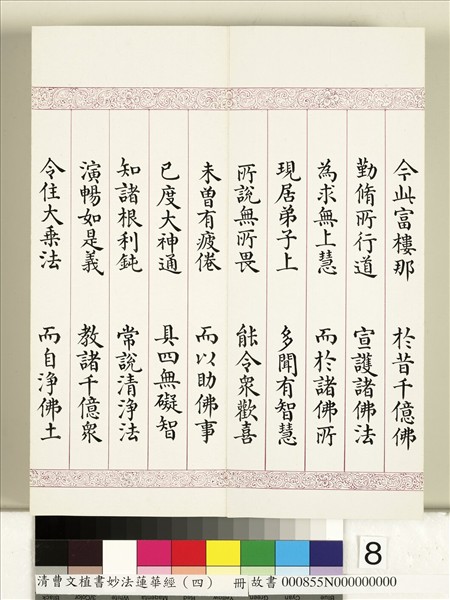 今此富樓那 於昔千億佛
勤脩所行道 宣護諸佛法
為求無上慧 而於諸佛所
現居弟子上 多聞有智慧
所說無所畏 能令衆歡喜
未曽有疲倦 而以助佛事
已度大神通 具四無礙智
知諸根利鈍 常說清淨法
演暢如是義 教諸千億衆
令住大乗法 而自淨佛土
8
清曹文植書妙法蓮華經（四） 冊 故書 000855N000000000